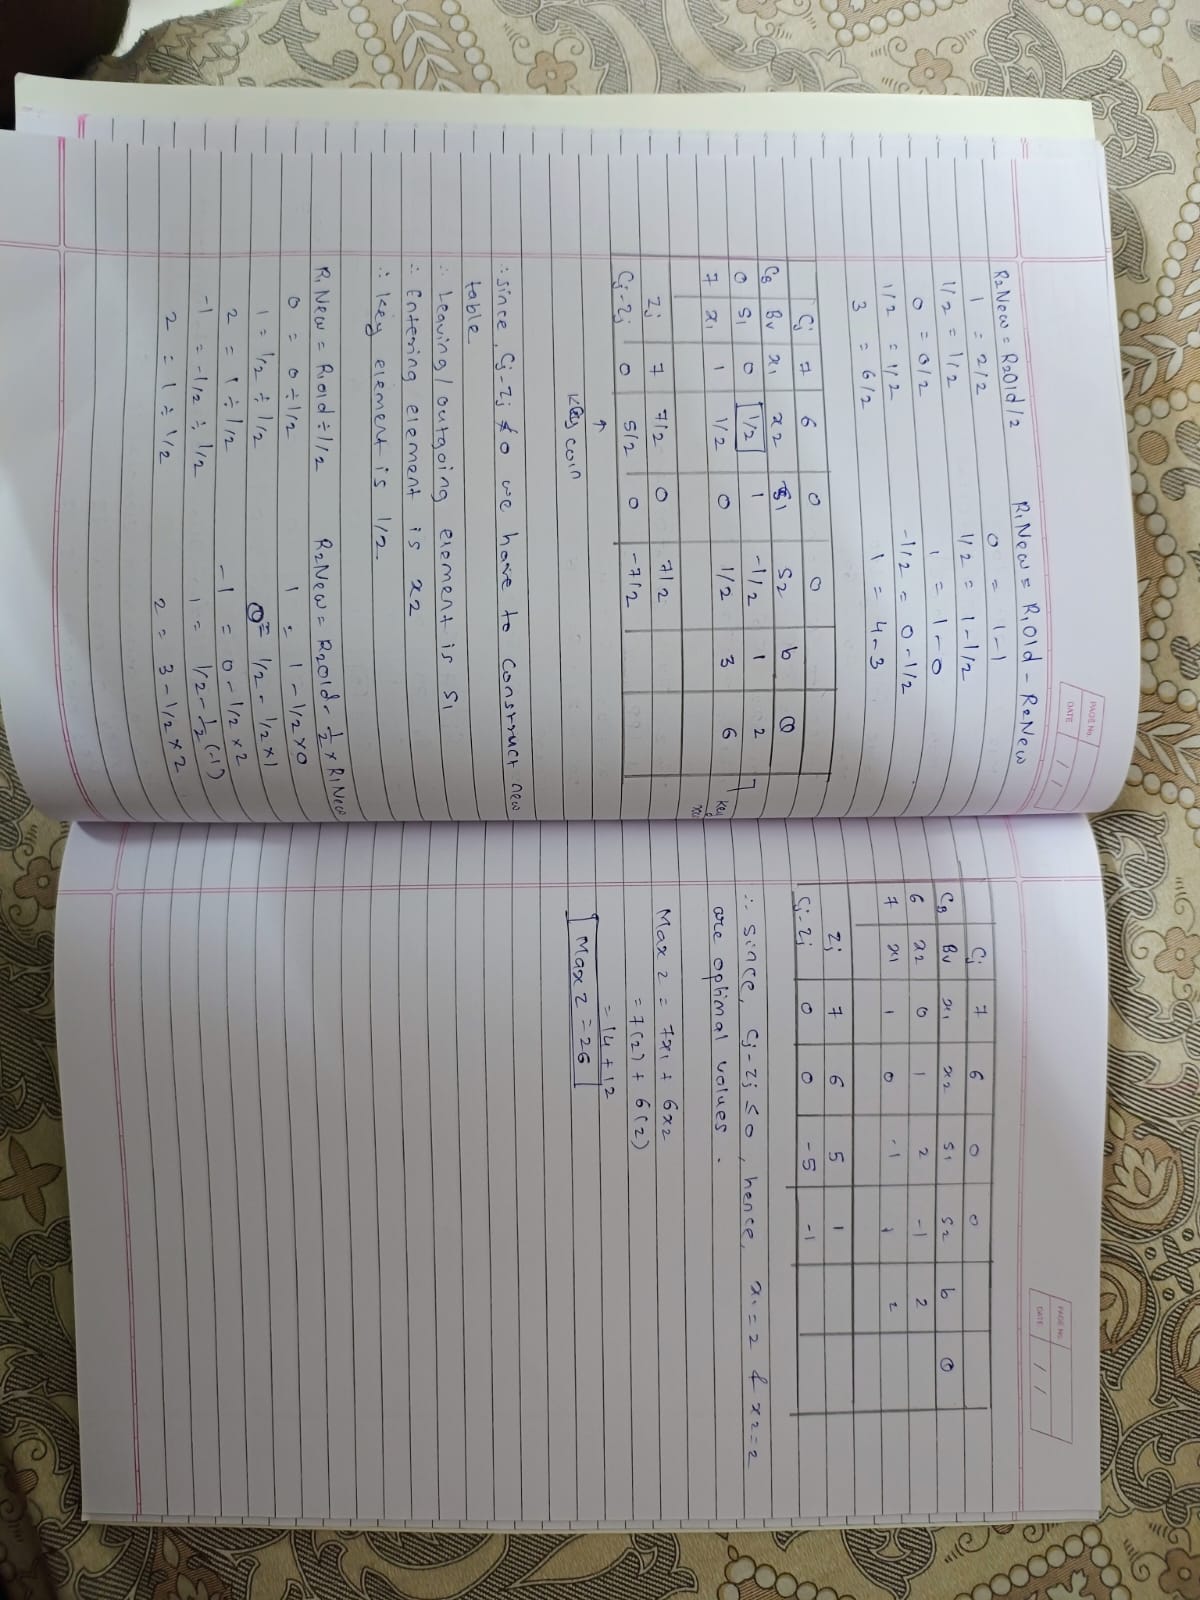 PAGE No.
DATE / /
R2New = R2Old/2
R1New = R1Old - R2New
1 = 2/2
0 = 1-1
1/2 = 1/2
1/2 = 1-1/2
0 = 0/2
1 = 1-0
1/2 = 1/2
-1/2 = 0-1/2
3 = 6/2
1 = 4-3
Cj 7 6 0 0
CB BV x1 x2 S1 S2 b θ
0 S1 0 1/2 1 -1/2 1 2
7 x1 1 1/2 0 1/2 3 6
Key
Zj 7 7/2 0 7/2
Cj-Zj 0 5/2 0 -7/2
↑
∴ since, Cj-Zj ≰0 we have to construct new
table
∴ Leaving/outgoing element is S1
∴ Entering element is x2
∴ key element is 1/2.
R1New = R1Old ÷ 1/2
R2New = R2Old - 1/2 × R1New
0 = 0 ÷ 1/2
1 = 1 - 1/2×0
1 = 1/2 ÷ 1/2
0 = 1/2 - 1/2×1
2 = 1 ÷ 1/2
-1 = 0 - 1/2×2
-1 = -1/2 ÷ 1/2
1 = 1/2 - 1/2(-1)
2 = 1 ÷ 1/2
2 = 3 - 1/2×2
PAGE No.
DATE / /
Cj 7 6 0 0
CB BV x1 x2 S1 S2 b θ
6 x2 0 1 2 -1 2
7 x1 1 0 -1 1 2
Zj 7 6 5 1
Cj-Zj 0 0 -5 -1
∴ since, Cj-Zj ≤0, hence, x1=2 & x2=2
are optimal values.
Max z = 7x1 + 6x2
= 7(2) + 6(2)
= 14 + 12
Max z = 26